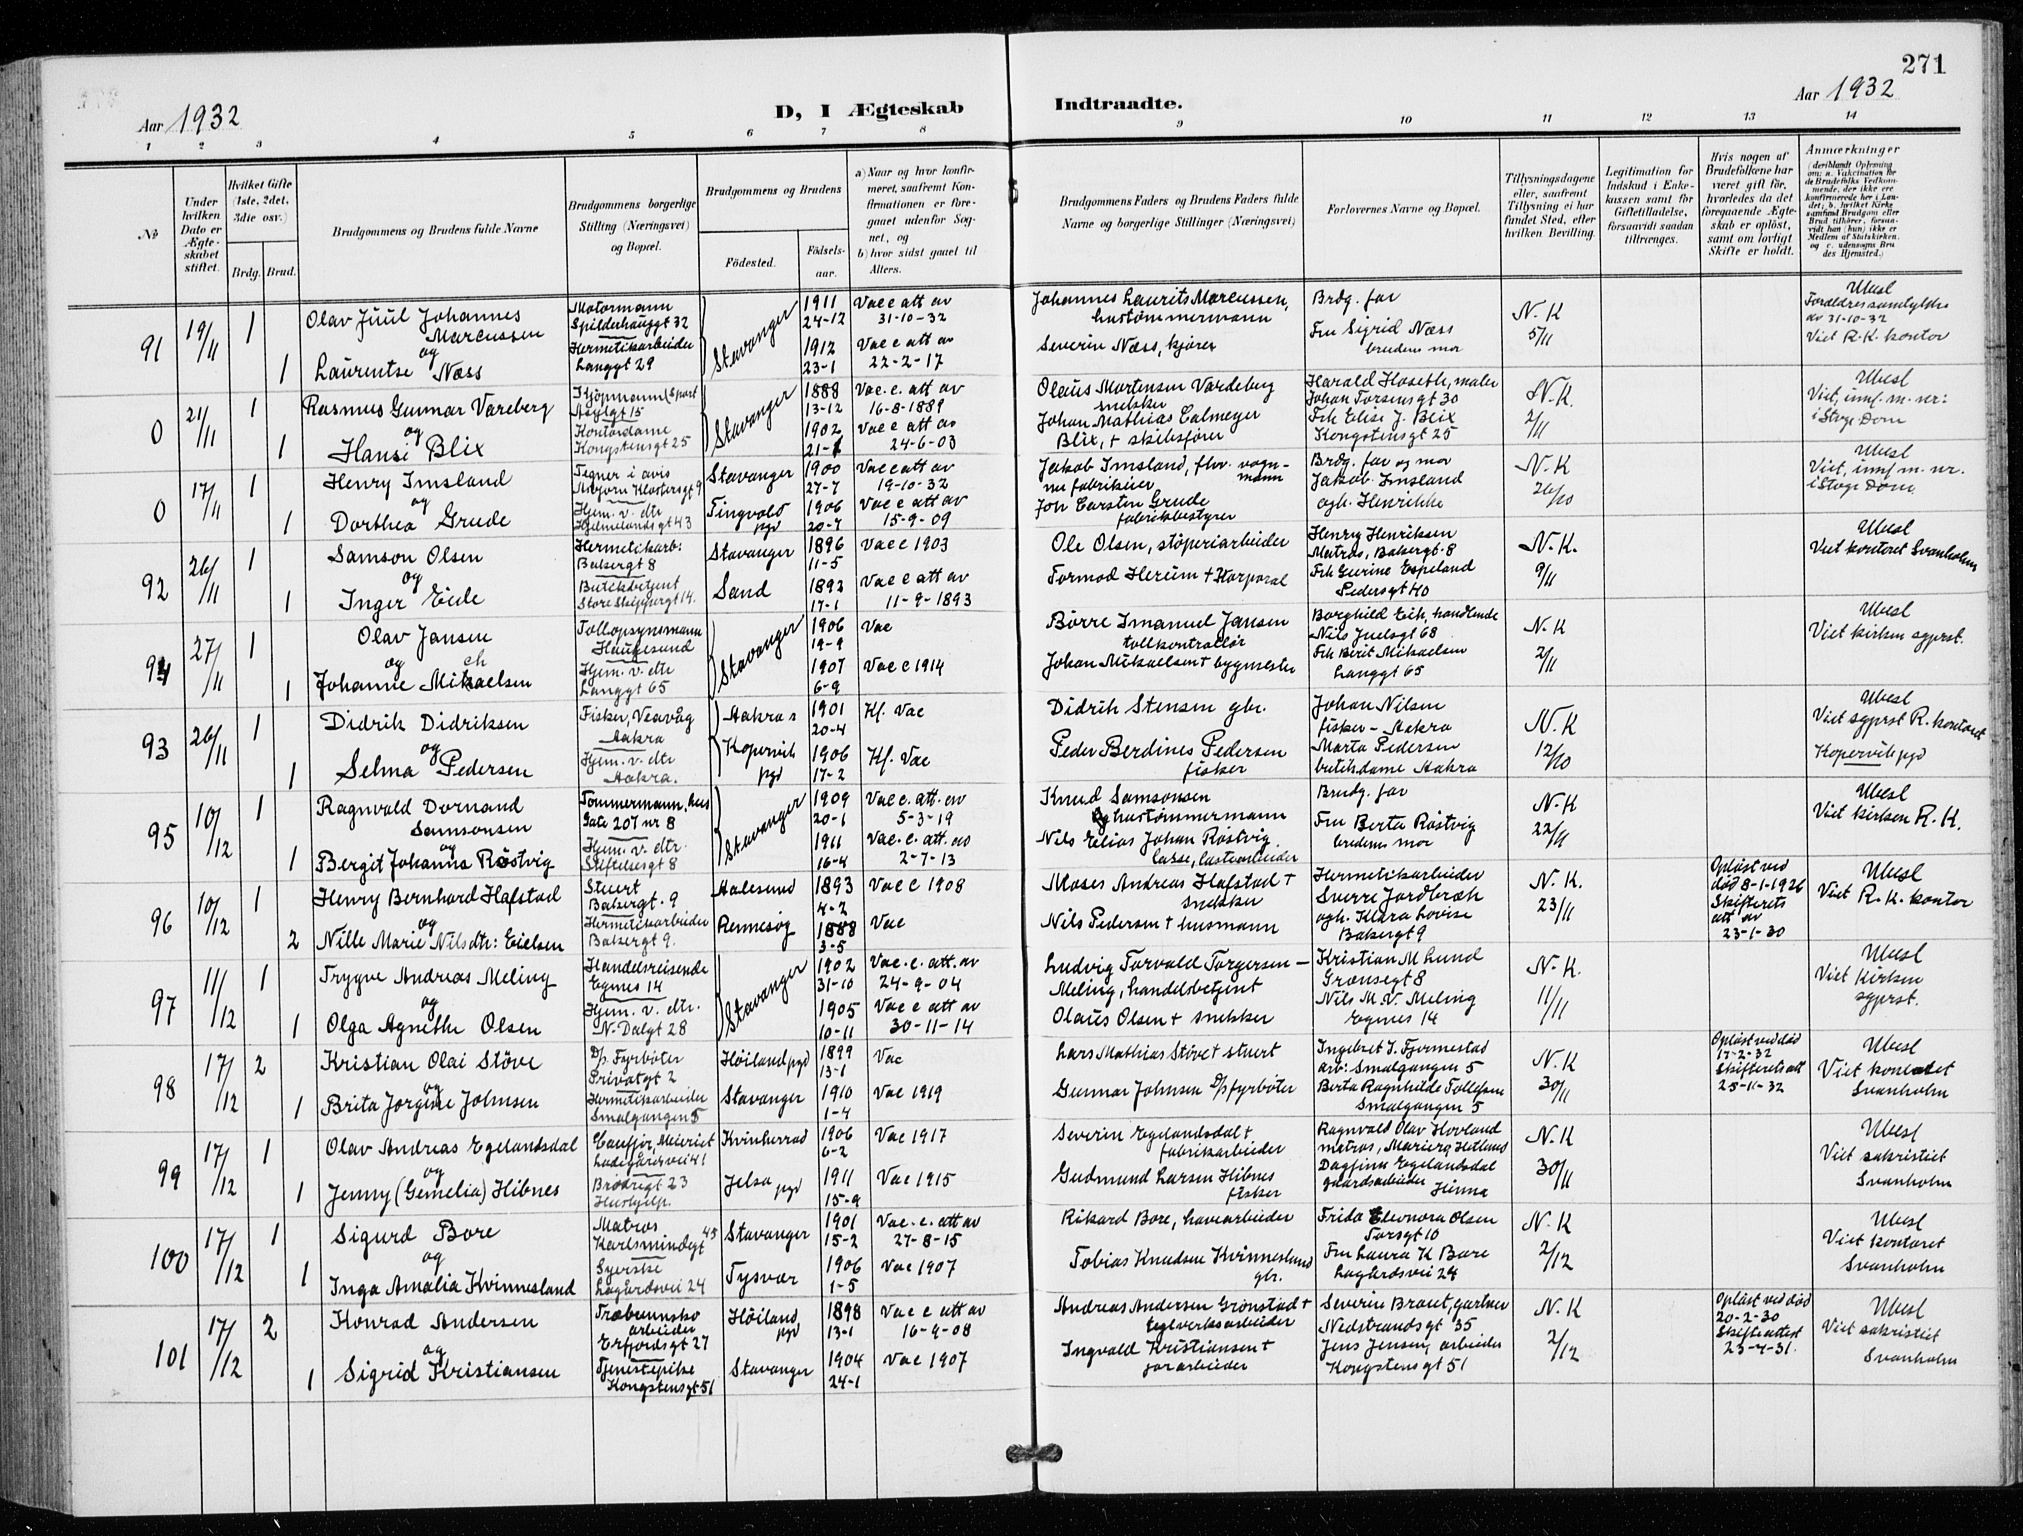 271
Aar 1932
D, I Ægteskab Indtraadte.
Aar 1932
1 2 3 4 5 6 7 8 9 10 11 12 13 14
No
Under hvilken Dato er Ægteskabet stiftet.
Hvilket Gifte (1ste, 2det, 3die osv.)
Brdg. Brud.
Brudgommens og Brudens fulde Navne
Brudgommens borgerlige Stilling (Næringsvei) og Bopæl.
Brudgommens og Brudens
Fødested.
Fødselsaar.
a) Naar og hvor konfirmeret, saafremt Konfirmationen er foregaaet udenfor Sognet, og
b) hvor sidst gaaet til Alters.
Brudgommens Faders og Brudens Faders fulde Navne og borgerlige Stillinger (Næringsvei)
Forlovernes Navne og Bopæl.
Tillysningsdagene eller, saafremt Tillysning ei har fundet Sted, efter hvilken Bevilling.
Legitimation for Indskud i Enkekassen samt for Giftetilladelse, forsaavidt saadan tiltrænges.
Hvis nogen af Brudefolkene har været gift før, hvorledes da det foregaaende Ægteskab er opløst, samt om lovligt Skifte er holdt.
Anmærkninger
(deriblandt Oplysning om: a. Vaccination for de Brudefolks Vedkommende, der ikke ere konfirmerede her i Landet; b. hvilket Kirkesamfund Brudgom eller Brud tilhører, forsaavidt han (hun) ikke er Medlem af Statskirken, og c. udensogns Brudes Hjemsted.)
91 19/11 1
Olav Juul Johannes Marcussen
og
1 Laurentse Næss
Motormann
Spilderhauggt 32
Hermetikarbeider
Langgt 29
Stavanger
1911 24-12
1912 23-1
Vac c att av 31-10-32
Vac c att av 22-2-17
Johannes Laurits Marcussen, hustømmermann
Severin Næss, kjører
Brdg. far
Fru Sigrid Næss brudens mor
N. K 5/11
Ubesl
Foreldres samtykke av 31-10-32
Viet R. K. kontor
0 21/11 1
Rasmus Gunnar Vareberg
og
1 Hansi Blix
Kjøpmann, Sport
Asylgt 15
Kontordame
Kongstensgt 25
Stavanger
1888 13-12
1902
Vac. c. att av 16-8-1889
Vac c att av 24-6-03
Olaus Mortensen Vardeberg snekker
Johan Mathias Calmeyer Blix, + skibsfører
Harald Hoseth, maler
Johan Torsensgt 30
Frk Elise J. Blix
Kongstensgt 25
N. K. 2/11
Ubesl
Viet, innf. m. nr: i Stvgr Dom
0 17/11 1
Henry Imsland
og
1 Dorthea Grude
Tegner i avis
Asbjørn Klostergt 9
Hjem. v. dtr
Hjelmelandsgt 43
Stavanger
Tingvold pgd
1900 27-7
1906 20-7
Vac c att av 19-10-32
Vac c att av 15-9-09
Jakob Imsland, fhv. vognmann
nu fabrikeier
Jon Carsten Grude fabrikbestyrer
Brdg. far og mor
Jakob Imsland
ogh. Henrikke
N. K 26/10
Ubesl
Viet, innf m. nr. i Stvgr Dom
92 26/11 1
Samson Olsen
og
1 Inger Eide
Hermetikarb:
Bakergt 8
Butikbetjent
Store Skippergt 14.
Stavanger
Sand
1896 11-5
1892 17-1
Vac c 1903
Vac c att av 11-9-1893
Ole Olsen, støperiarbeider
Tormod Herum + Korporal
Henry Henriksen
Matros, Bakergt 8
Frk Gurine Espeland
Pedersgt 40
N. K. 9/11
Ubesl
Viet kontoret Svanholm
94 27/11 1
Olav Jansen
og
1 Johanne Mikaelsen
Tollopsynsmann
Haugesund
Hjem. v. dtr
Langgt 65
Stavanger
1906 19-9
1907 6-9
Vac
Vac c 1914
Børre Imanuel Jansen tollkontrollør
Johan Mikaelsen + bygmester
Borghild Eik, handlende
Nils Juelsgt 68
Frk Berit Mikaelsen
Langgt 65
N. K 2/11
Ubesl
Viet kirken sgprst.
93 26/11 1
Didrik Didriksen
og
1 Selma Pedersen
Fisker, Veavåg
Aakra
Hjem. v. dtr
Aakra.
Aakra
Kopervik pgd
1901 20-4
1906 17-2
Kf. Vac
Kf. Vac
Didrik Stensen gbr.
Peder Berdines Pedersen fisker
Johan Nilsen
fisker - Aakra
Marta Pedersen
butikdame Aakra
N. K 12/10
Ubesl
Viet sgprst R. kontoret
Kopervik pgd
95 10/12 1
Ragnvald Dornand Samsonsen
og
1 Bergit Johanna Røstvig
Tømmermann, hus
Gate 207 nr 8
Hjem. v. dtr.
Stiftelsesgt 8
Stavanger
1909 20-1
1911 16-4
Vac c. att. av 5-3-19
Vac. c. att. av 2-7-13
Knud Samsonsen hustømmermann
Nils Elias Johan Røstvig
losse, lastearbeider
Brudg. far
Fru Berta Røstvig brudens mor
N. K 22/11
Ubesl
Viet kirken R. K.
96 10/12 1
Henry Bernhard Hafstad
og
2 Nille Marie Nilsdtr: Eielsen
Stuert
Bakergt. 9
Hermetikarbeider
Bakergt 9.
Aalesund
Rennesøy
1893 4-2
1888 3-5
Vac c 1908
Vac
Moses Andreas Hafstad + snekker
Nils Pedersen + husmann
Hermetikarbeider
Sverre Jordbræk
ogh. Klara Lovise
Bakergt 9
N. K. 23/11
Opløst ved død 8-1-1926
Skifterets att av 23-1-30
Ubesl
Viet R. K. kontor
97 11/12 1
Trygve Andreas Meling
og
1 Olga Agnethe Olsen
Handelsreisende
Egnes 14
Hjem. v. dtr.
N. Dalgt 28
Stavanger
1902 31-10
1905 10-11
Vac. c. att. av 24-9-04
Vac c att av 30-11-14
Ludvig Torvald Torgersen -
Meling, handelsbetjent
Olaus Olsen + snekker
Kristian M Lund
Grænsegt 8
Nils M. V. Meling
Egnes 14
N. K. 11/11
Ubesl
Viet kirken sgprst.
98 17/12 2
Kristian Olai Støve
og
1 Brita Jorgine Johnsen
D/s Fyrbøter
Privatgt 2
Hermetikarbeider
Smalgangen 5
Høiland pgd
Stavanger
1899 13-1
1910 1-4
Vac
Vac 1919
Lars Mathias Støve + stuert
Gunnar Johnsen D/s fyrbøter
Ingebret S. Fjermestad
arb: Smalgangen 5
Berta Ragnhilde Tollefsen
Smalgangen 5
N. K 30/11
Opløst ved død 17-2-32
Skifteretsatt 25-11-32
Ubesl
Viet kontoret
Svanholm
99 17/12 1
Olav Andreas Egelandsdal
og
1 Jenny (Gemelia) Hibnes
Cauffør, Meieriet
Ladegårdsvei 41
Brødregt 23
Hushjelp.
Kvinherrad
Jelsa pgd
1906 6-2
1911 15-9
Vac 1917
Vac 1915
Severin Egelandsdal + fabrikarbeider
Gudmund Larsen Hibnes fisker
Ragnvald Olav Hovland
matros, Mariero, Hetland
Dagfinn Egelandsdal
gaardsarbeider Hinna
N. K 30/11
Ubesl
Viet sakristiet
Svanholm
100 17/12 1
Sigurd Bore
og
1 Inga Amalia Kvinnesland
Matros
Karlsmindegt 45
Syerske
Lagårdsvei 24
Stavanger
Tysvær
1901 15-2
1906 1-5
Vac. c. att av 27-8-15
Vac 1907
Rikard Bore, havnearbeider
Tobias Knudsen Kvinnesland gbr.
Frida Eleonora Olsen
Torsgt 10
Fru Laura K Bore
Lagårdsvei 24
N. K 2/12
Ubesl
Viet kontoret
Svanholm
101 17/12 2
Konrad Andersen
og
1 Sigrid Kristiansen
Træbunnsko arbeider
Erfjordsgt 27
Tjenestepike
Kongstensgt 51
Høiland pgd
Stavanger
1898 13-1
1904 24-1
Vac c att av 16-9-08
Vac 1907
Andreas Andersen Grønstad + teglverksarbeider
Ingvald Kristiansen + jorarbeider
Severin Braut, gartner
Nedstrandsgt 35
Jens Jensen, arbeider
Kongstensgt 51
N. K 2/12
Opløst ved død 20-2-30
Skifteattest 23-4-31.
Ubesl
Viet sakristiet
Svanholm